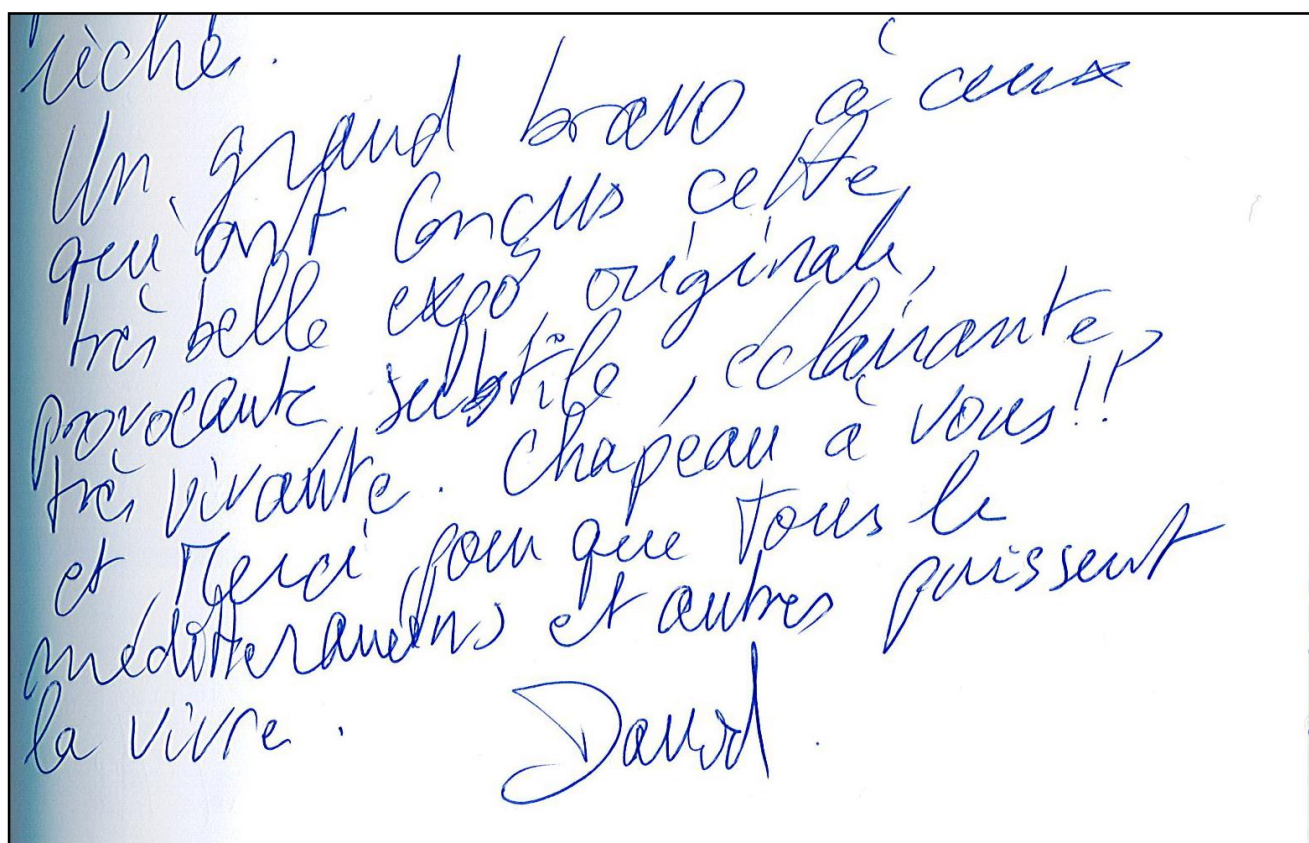 Un grand bravo à ceux
qui ont conçus cette
très belle expo originale,
provocante, subtile, éclairante,
très vivante. Chapeau à vous!!
et Merci pour que tous le
méditterranéens et autres puissent
la vivre. David.